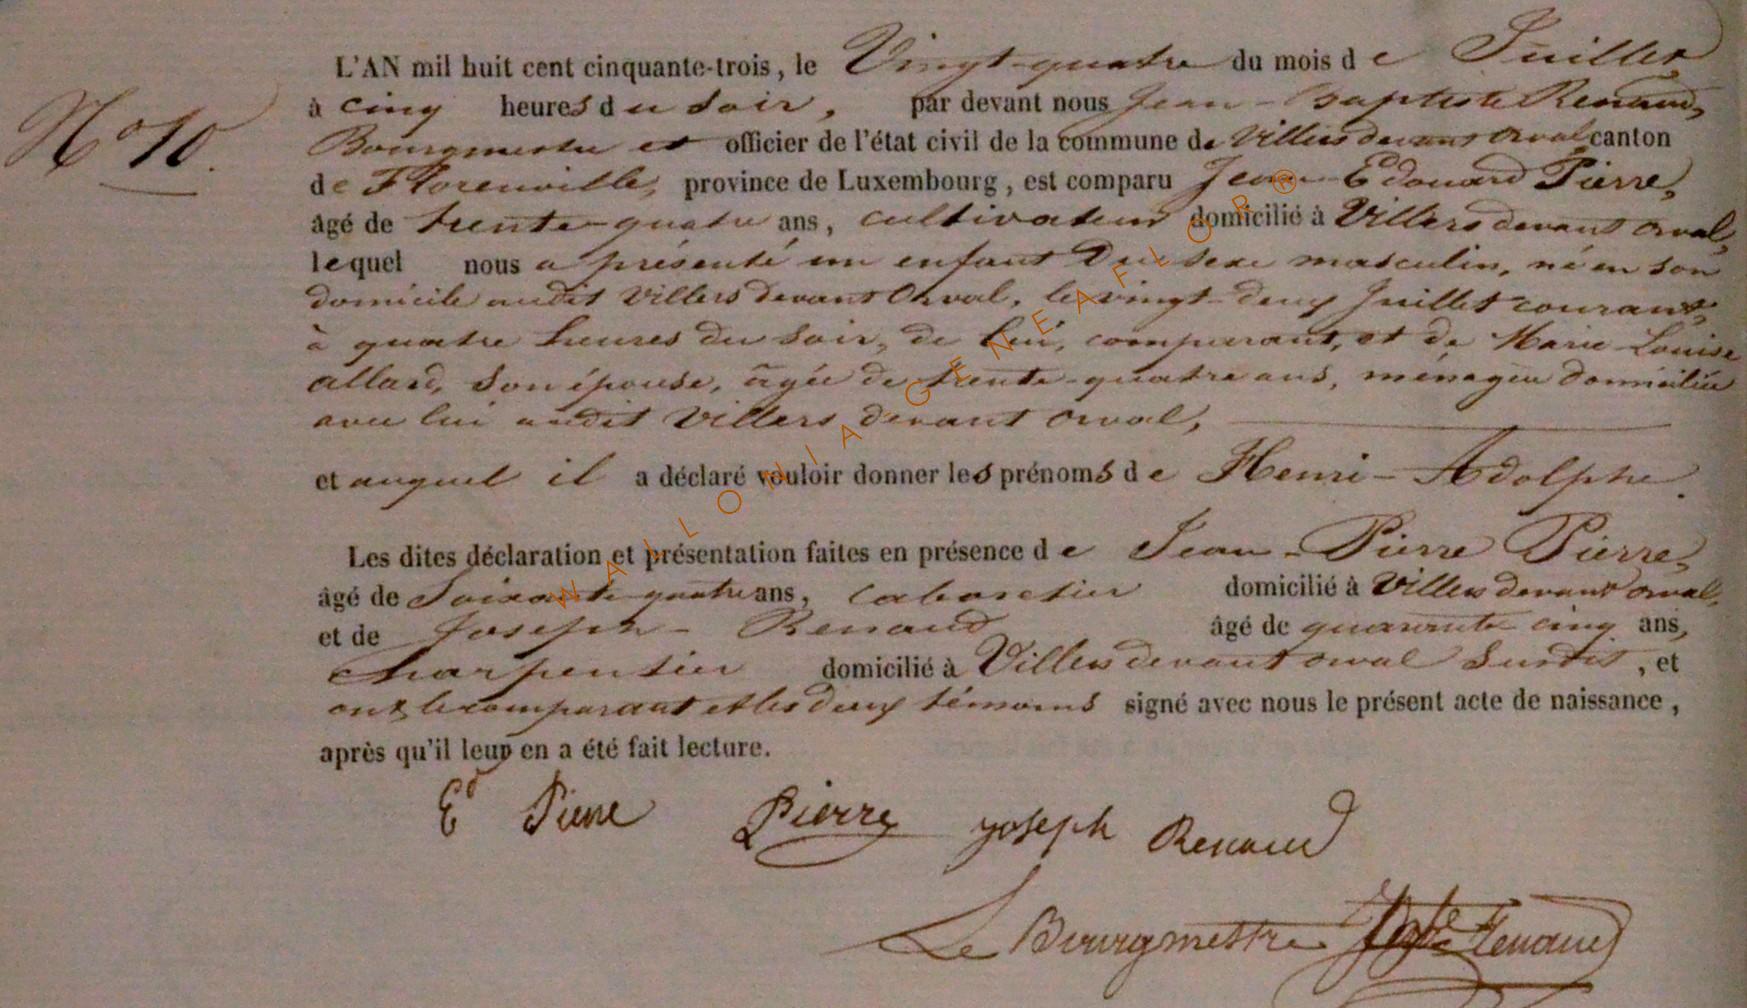 N.o 10.
L'AN mil huit cent cinquante-trois, le Vingt-quatre du mois de Juillet
à cinq heures du soir, par devant nous Jean-Baptiste Renaud,
Bourgmestre et officier de l'état civil de la commune de Villers devant Orval canton
de Florenville, province de Luxembourg, est comparu Jean-Edouard Pierre,
âgé de trente-quatre ans, cultivateur domicilié à Villers devant Orval,
lequel nous a présenté un enfant du sexe masculin, né en son
domicile audit Villers devant Orval, le vingt-deux Juillet courant,
à quatre heures du soir, de lui, comparant, et de Marie-Louise
Allard, son épouse, âgée de trente-quatre ans, ménagère domiciliée
avec lui audit Villers devant Orval,
et auquel il a déclaré vouloir donner les prénoms de Henri-Adolphe.
Les dites déclaration et présentation faites en présence de Jean-Pierre Pierre,
âgé de soixante-quatre ans, cabaretier domicilié à Villers devant Orval,
et de Joseph-Renaud âgé de quarante cinq ans,
charpentier domicilié à Villers devant Orval susdit, et
ont le comparant et les deux témoins signé avec nous le présent acte de naissance,
après qu'il leur en a été fait lecture.
Ed Pierre Pierre Joseph Renaud
Le Bourgmestre JBte Renaud
WALLONIA-GENEAFLOR®